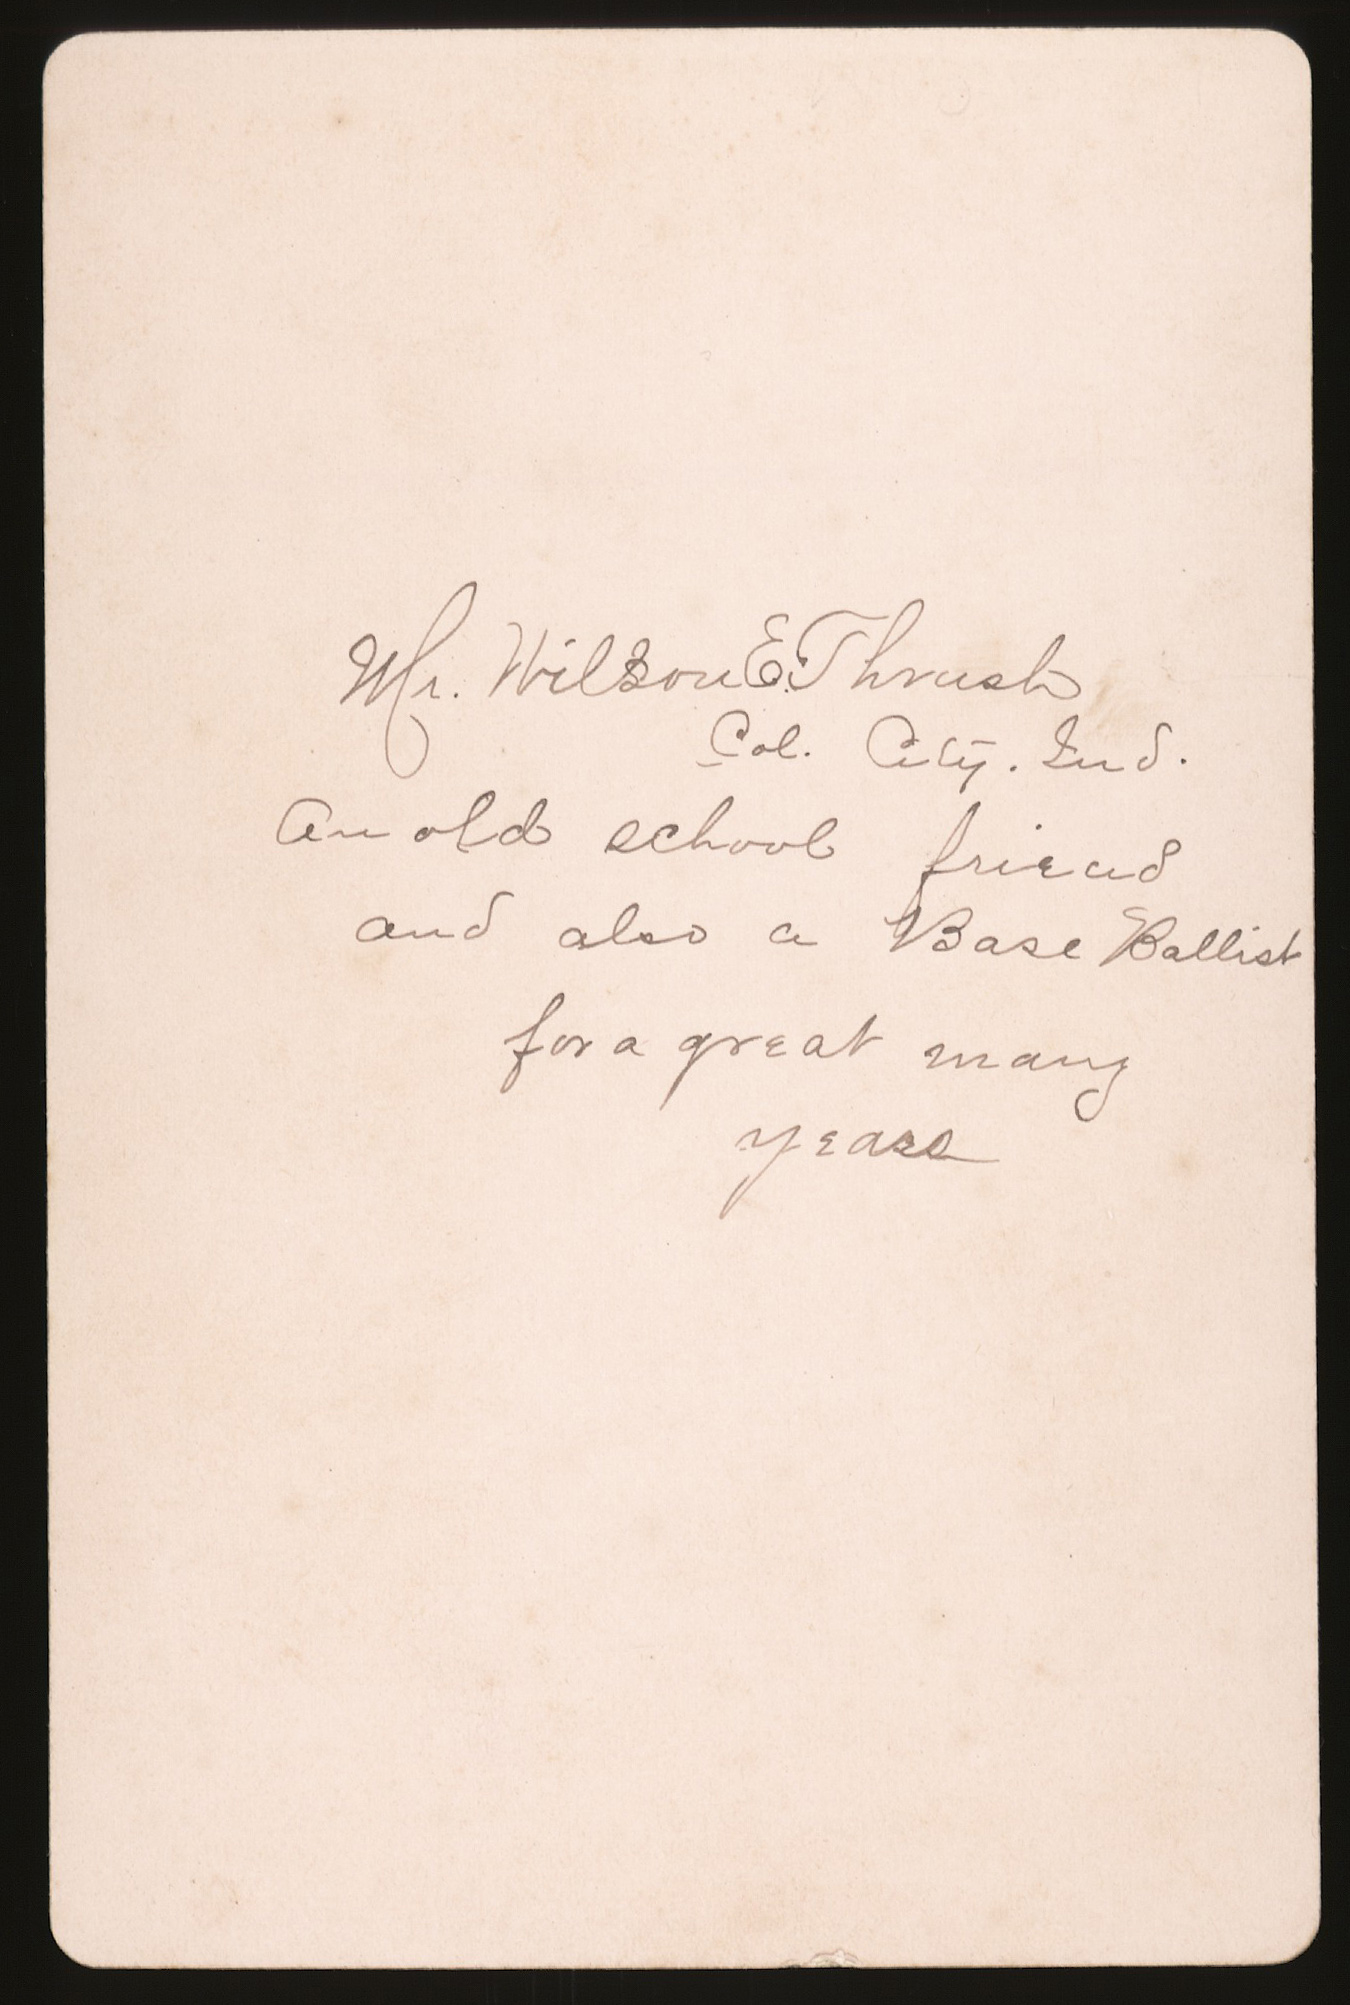 Mr. Wilson E. Thrush
Col. City. Ind.
An old school friend
and also a Base Ballist
for a great many
years